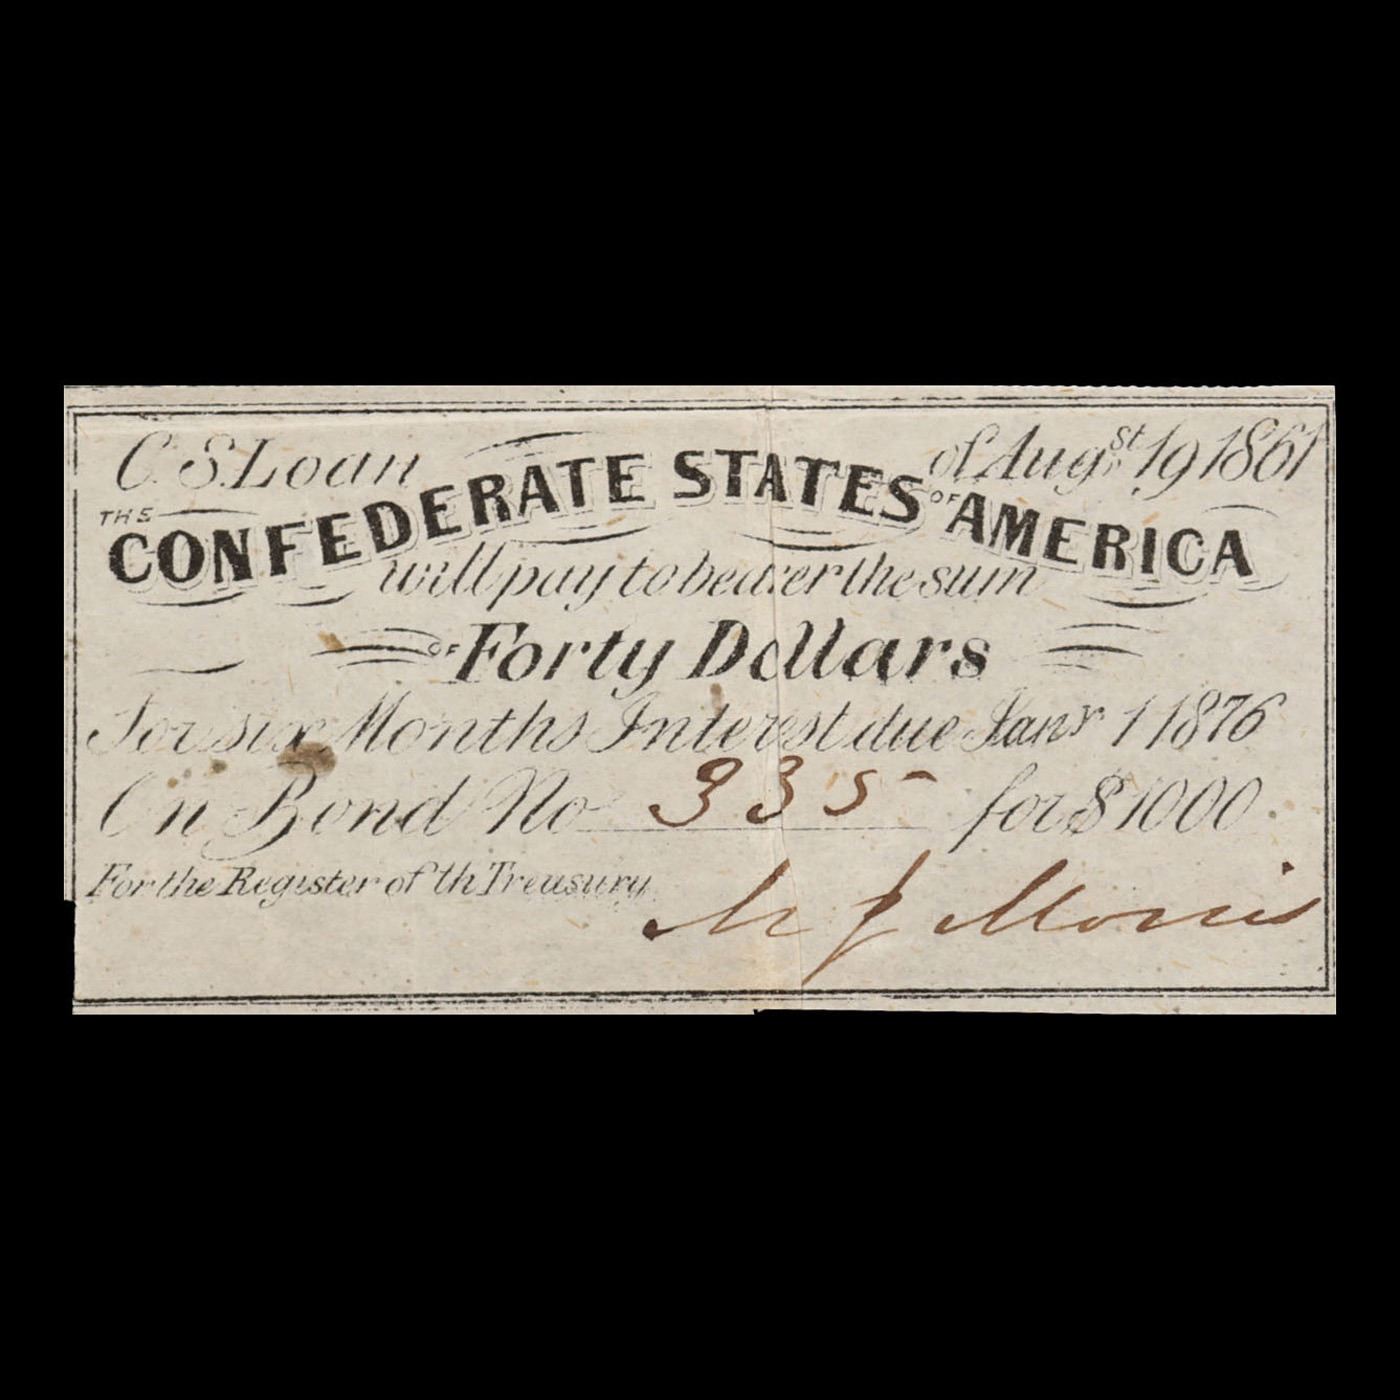 C.S. Loan of Augst 19 1861
THE CONFEDERATE STATES OF AMERICA
will pay to bearer the sum
OF Forty Dollars
For six Months Interest due Jany 1 1876
On Bond No 335 for $1000
For the Register of th Treasury
Morris